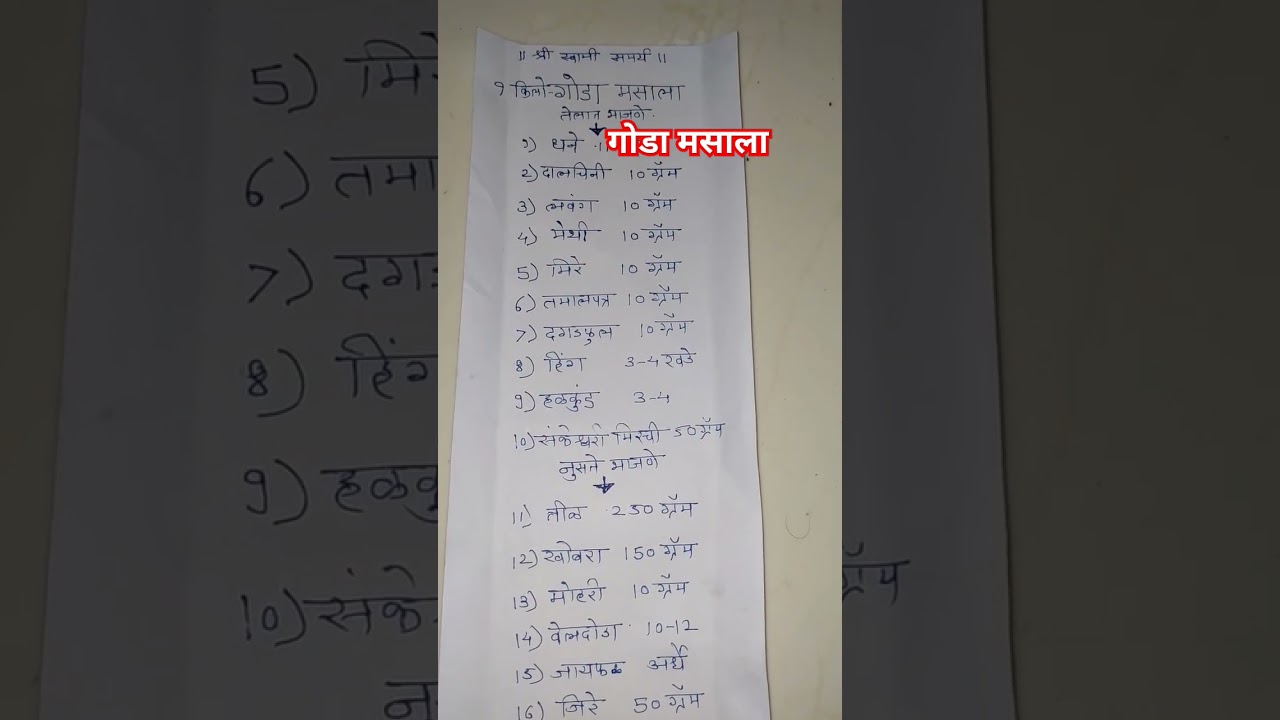 ॥ श्री स्वामी समर्थ ॥
१ किलो-गोडा मसाला
तेलात भाजणे.
गोडा मसाला
१) धने
2) दालचिनी 10 ग्रॅम
3) लवंग 10 ग्रॅम
4) मेथी 10 ग्रॅम
5) मिरे 10 ग्रॅम
6) तमालपत्र 10 ग्रॅम
7) दगडफुल 10 ग्रॅम
8) हिंग 3-4 खडे
9) हळकुंड 3-4
10) संकेश्वरी मिरची 50 ग्रॅम
नुसते भाजणे
11) तीळ 250 ग्रॅम
12) खोबरा 150 ग्रॅम
13) मोहरी 10 ग्रॅम
14) वेलदोडा 10-12
15) जायफळ अर्धे
16) जिरे 50 ग्रॅम